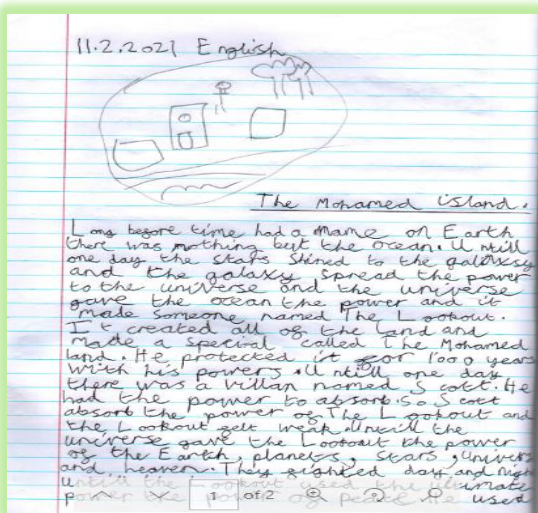 11.2.2021 English
The Mohamed island.
Long before time had a name on Earth
there was nothing but the ocean. Untill
one day the stars shined to the galaxsy
and the galaxsy spread the power
to the universe and the universe
gave the ocean the power and it
made someone named The Lookout.
It created all of the land and
made a special called The Mohamed
land. He protected it for 1000 years
with his powers. Untill one day
there was a villan named Scott. He
had the power to absorb. So Scott
absorb the power of The Lookout and
the Lookout felt weak. Untill the
universe gave the Lookout the power
of the Earth, planets, stars, univers
and heaven. They fighted day and night
untill the Lookout used the ultimate
power the power of peace. He used
1 of 2